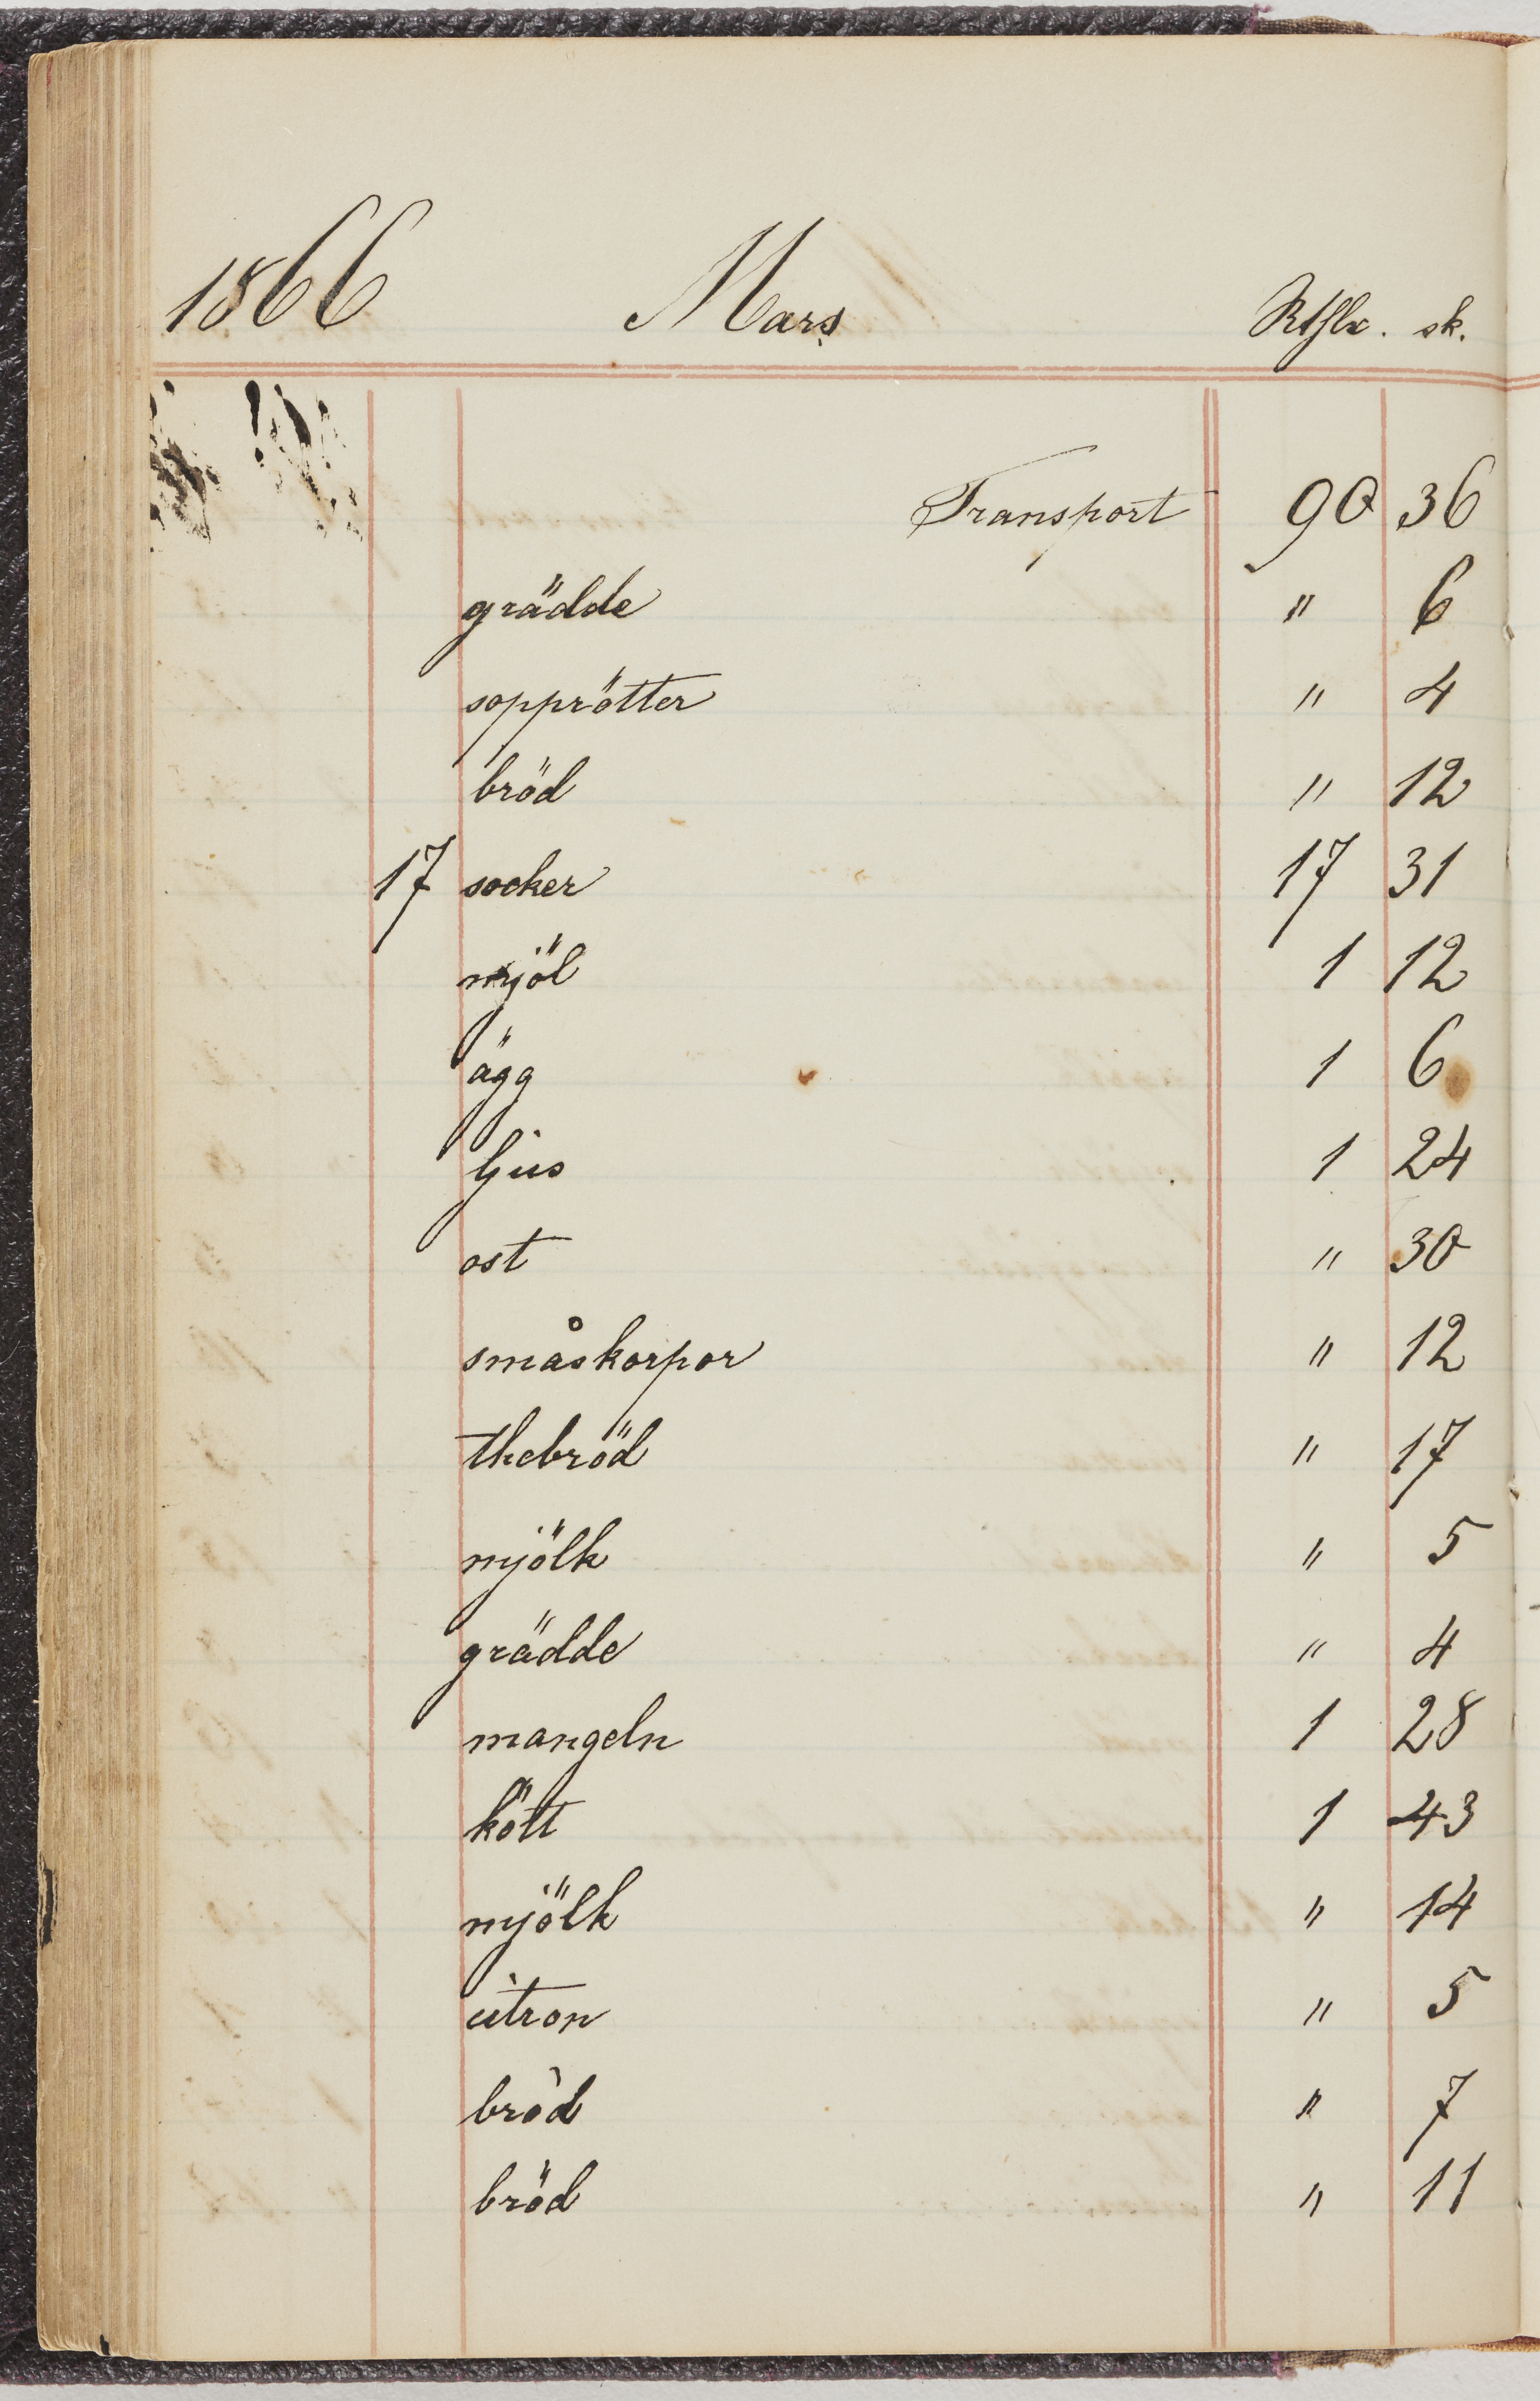 1866 Mars Rthlr. sk.
Transport 90 36
grädde " 6
sopprötter " 4
bröd " 12
17 socker 17 31
mjöl 1 12
ägg 1 6
ljus 1 24
ost " 30
småskorpor " 12
thebröd " 17
mjölk " 5
grädde " 4
mangeln 1 28
kött 1 43
mjölk " 14
citron " 5
bröd " 7
bröd " 11